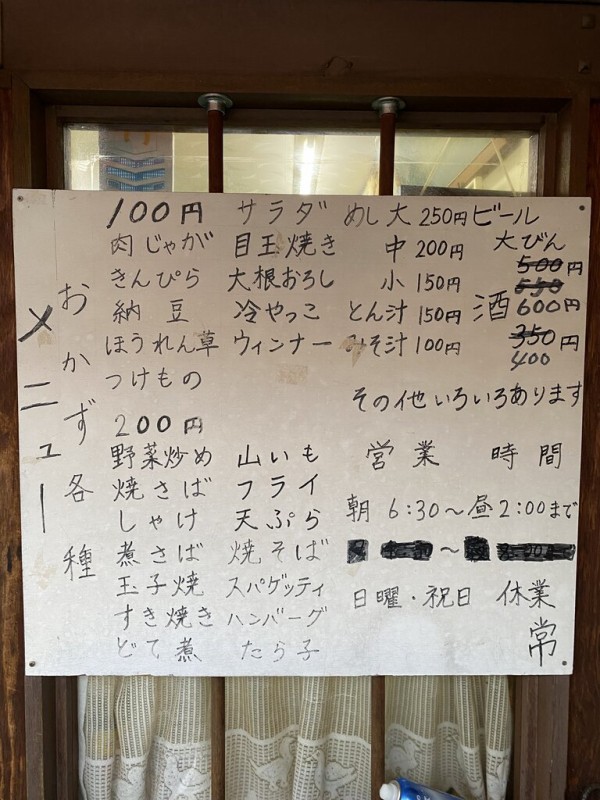 メニュー
おかず各種
100円
肉じゃが
きんぴら
納豆
ほうれん草
つけもの
サラダ
目玉焼き
大根おろし
冷やっこ
ウィンナー
200円
野菜炒め
焼さば
しゃけ
煮さば
玉子焼
すき焼き
どて煮
山いも
フライ
天ぷら
焼そば
スパゲッティ
ハンバーグ
たら子
めし大 250円
中 200円
小 150円
とん汁 150円
みそ汁 100円
ビール
大びん
500円
550
600円
酒
350円
400
その他いろいろあります
営業時間
朝 6:30~昼2:00まで
~
日曜・祝日 休業
常